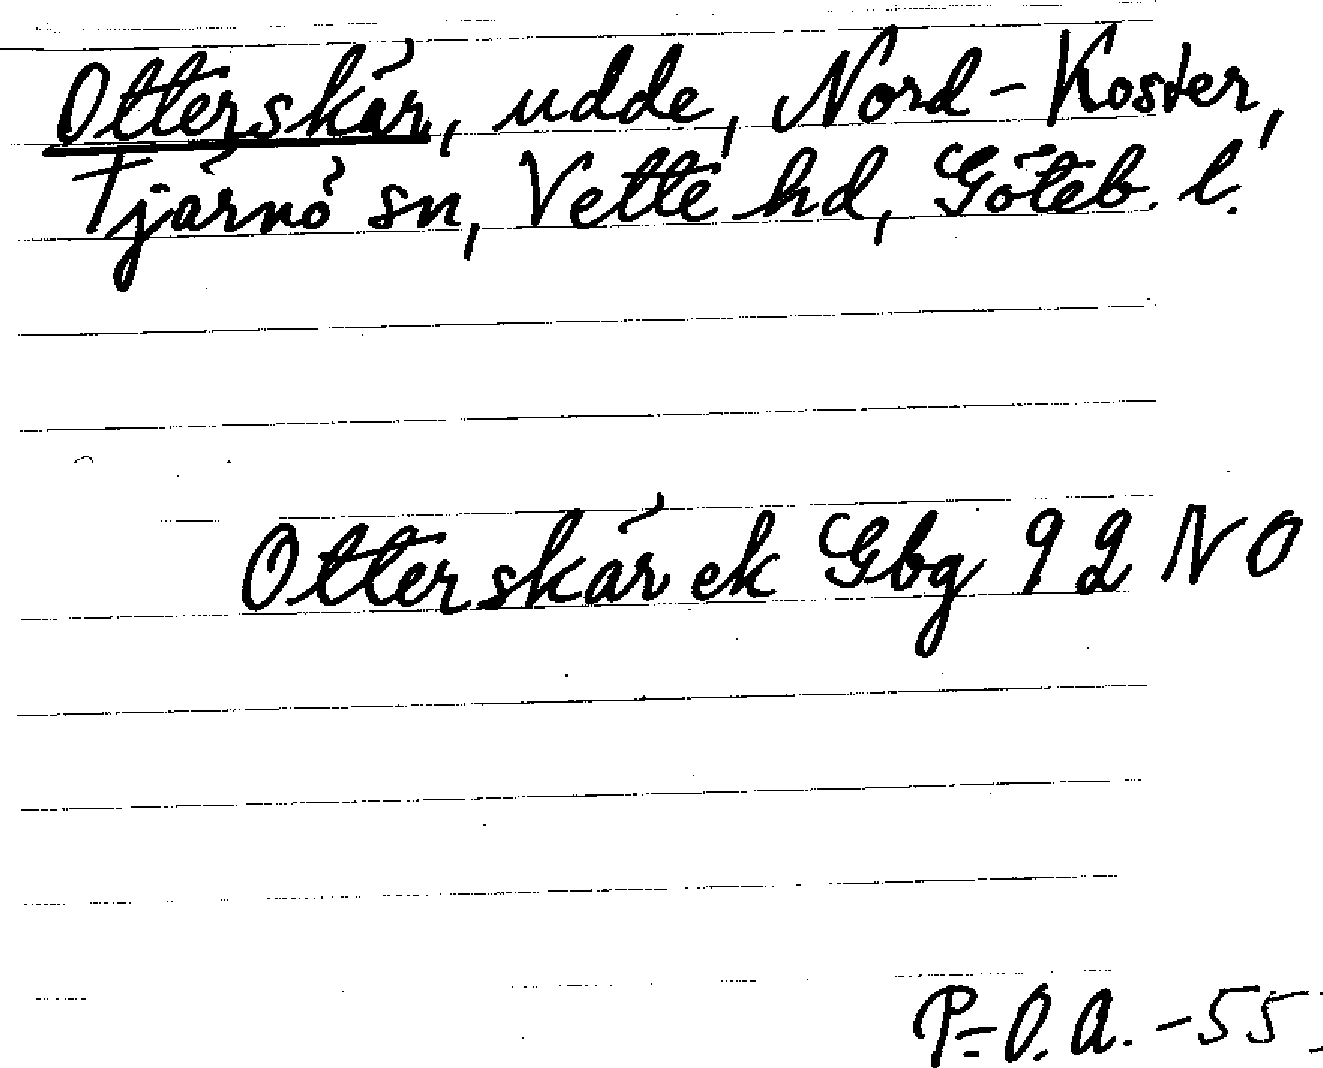 Otterskär, udde, Nord-Koster,
Tjärnö sn, Vette hd, Göteb. l.
Otterskär ek Gbg 92 NO
P-O.A. -55